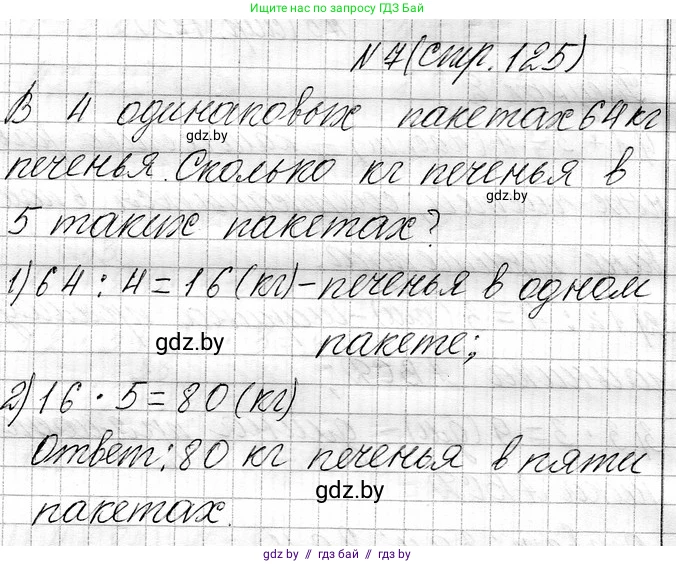 Ищите нас по запросу ГДЗ Бай
№ 7 (стр. 125)
В 4 одинаковых пакетах 64 кг
gdz.by
печенья. Сколько кг печенья в
gdz.by
5 таких пакетах?
1) 64 : 4 = 16 (кг) – печенья в одном
gdz.by
пакете;
2) 16 · 5 = 80 (кг)
Ответ: 80 кг печенья в пяти
gdz.by
пакетах.
gdz by // гдз бай // гдз by